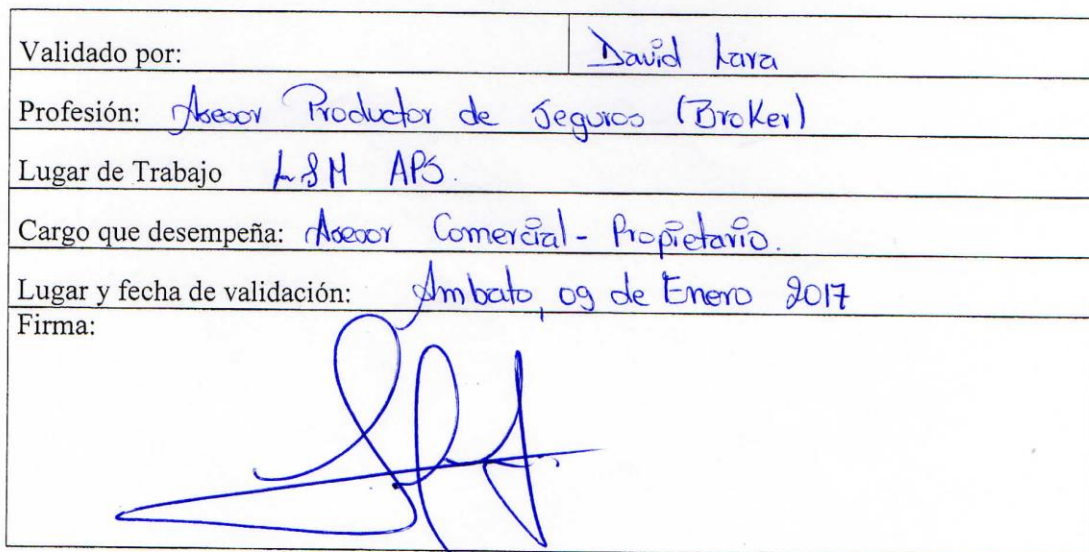 Validado por: David Lara
Profesión: Asesor Productor de Seguros (Broker)
Lugar de Trabajo LSM APS.
Cargo que desempeña: Asesor Comercial - Propietario.
Lugar y fecha de validación: Ambato, 09 de Enero 2017
Firma: